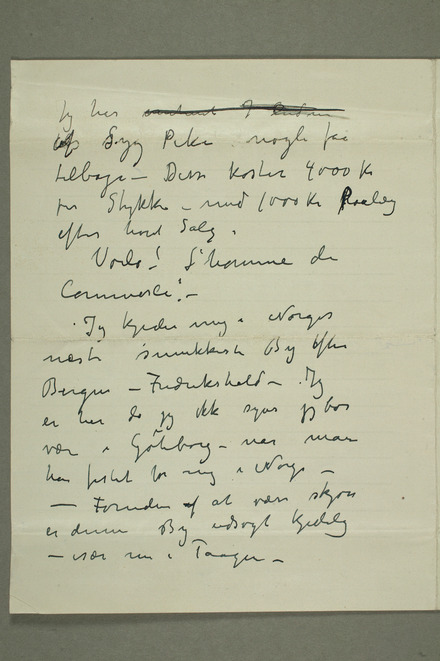 Jeg har
af Syg Pike nogle faa
tilbage – Disse koster 4000 Kr
pr Stykke – med 1000 Kr
efter hvert Salg.
Voila! L'homme de
Commerce! –
Jeg kjeder mig i Norges
næste smukkeste By efter
Bergen – Fredrikshald –. Jeg
er her da jeg ikke synes jeg bør
være i Göteborg – naar man
har festet for mig i Norge –
– Foruden af at være skjøn
er denne By udsøgt kjedelig
– især nu i Taagen –